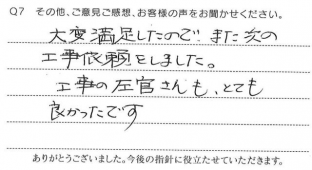 Q7 その他、ご意見ご感想、お客様の声をお聞かせください。
大変満足したので、また次の
工事依頼をしました。
工事の左官さんも、とても
良かったです
ありがとうございました。今後の指針に役立たせていただきます。